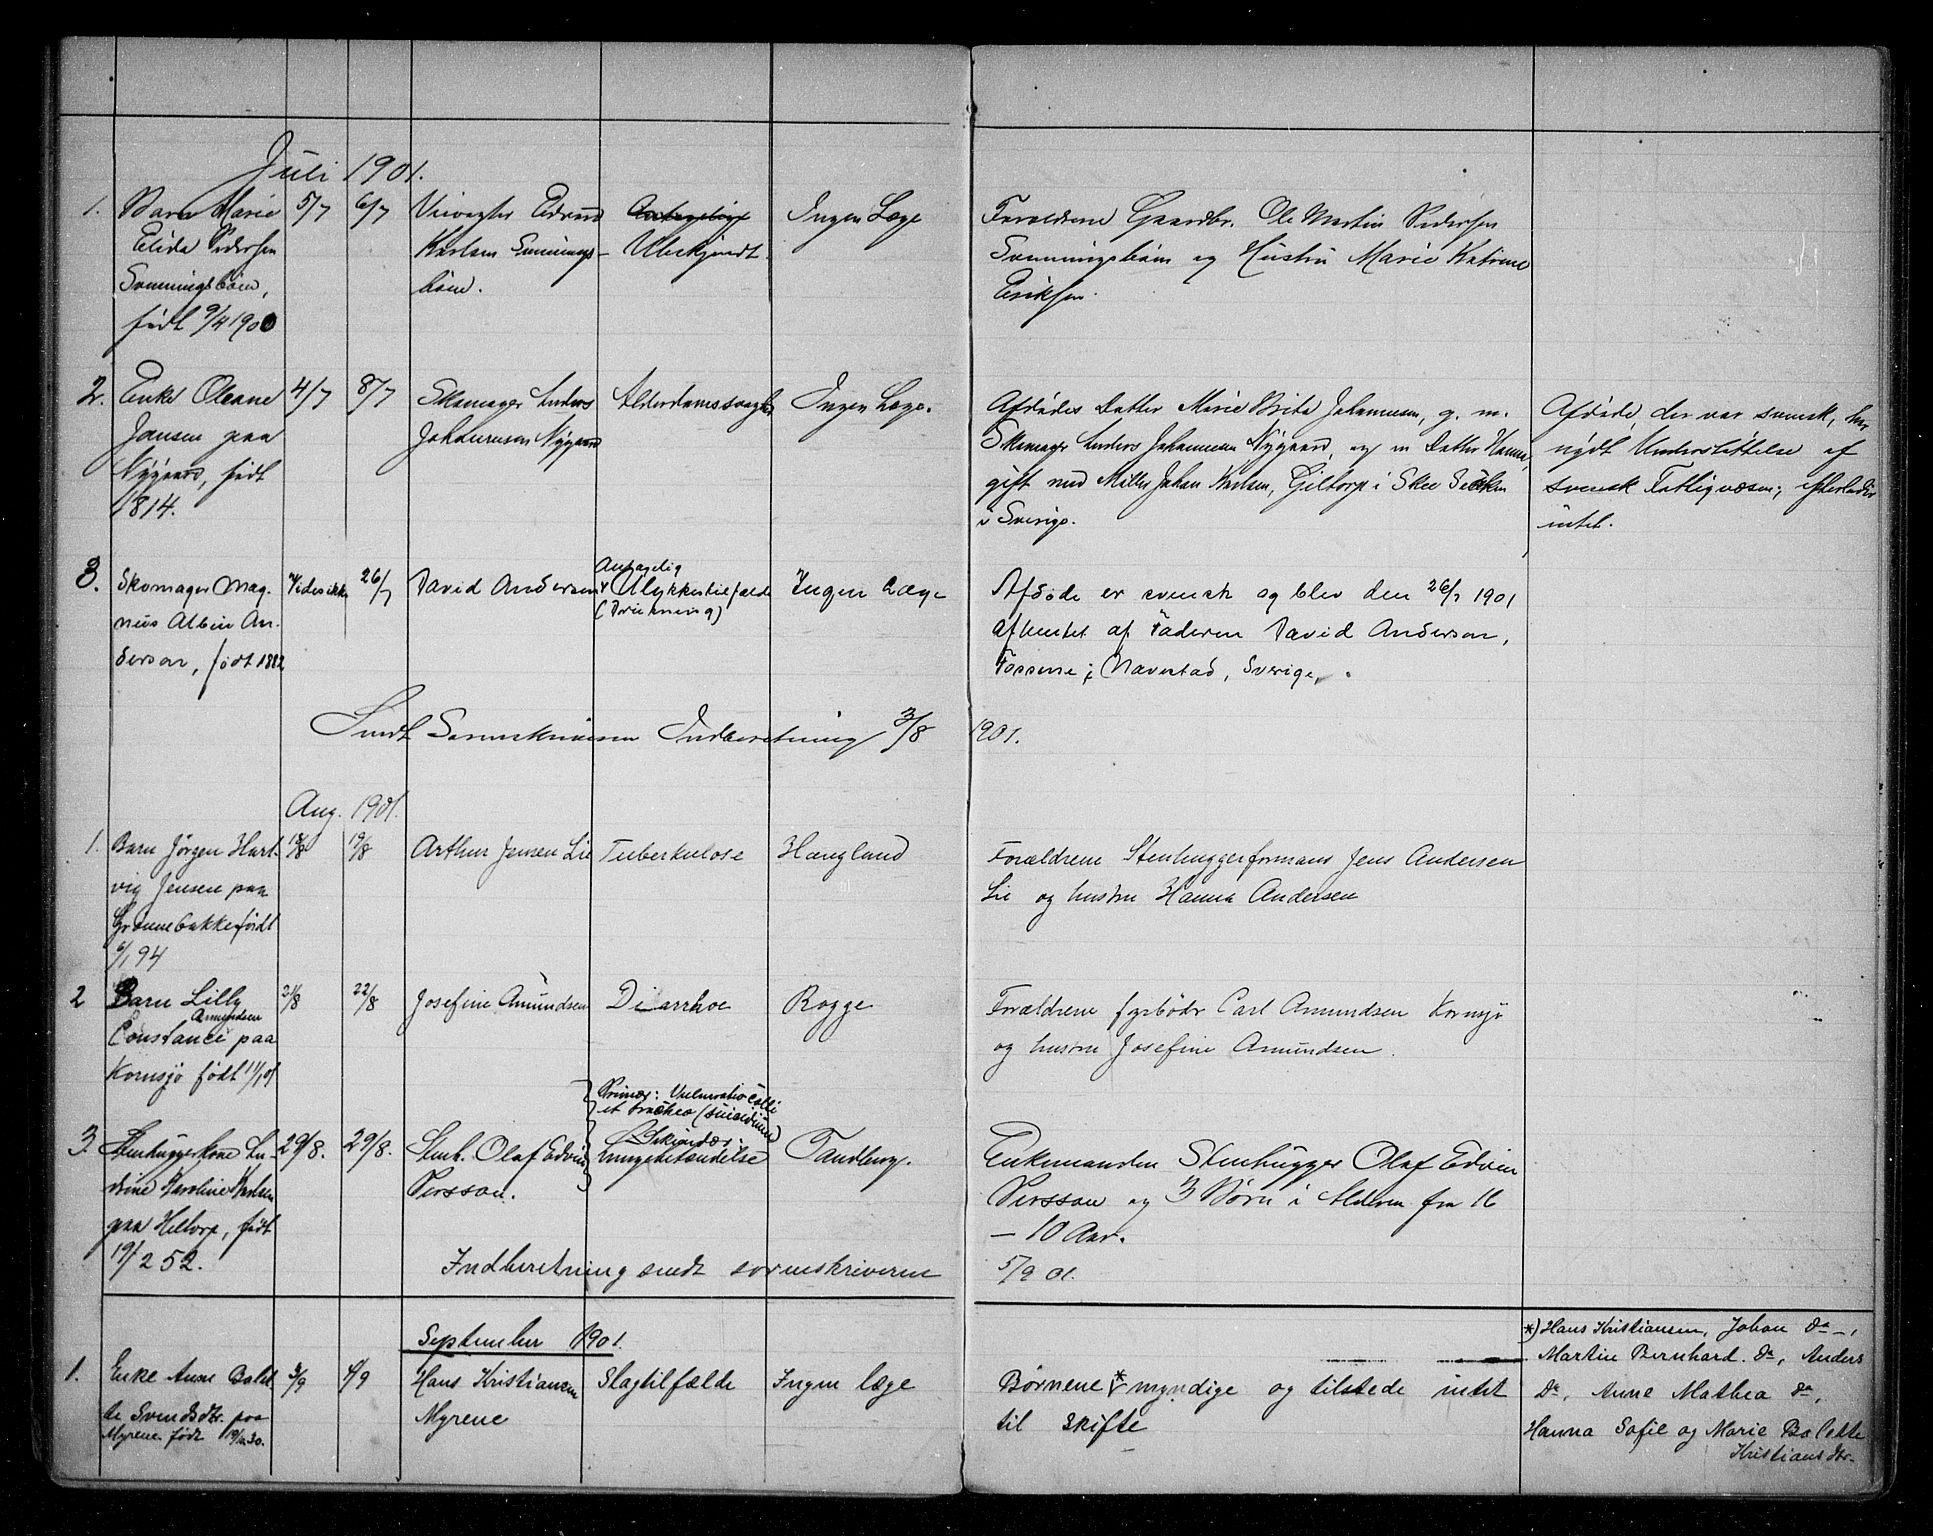 Juli 1901.
1. Barn Marie
Elida Pedersen
Svenningsbøen,
født 9/4 1900
5/7 6/7
Edvard
Karlsen Svennings-
bøen.
Antagelig
Ubekjendt.
Ingen Læge
Forældrene Gaardbr. Ole Martin Pedersen
Svenningsbøen og Hustru Marie Katrine
Eriksen.
2. Enke Oleane
Jansen paa
Nygaard, født
1814.
4/7 8/7
Skomager Anders
Johannesen Nygaard
Alderdomssvaghed
Ingen Læge.
Afdødes Datter Marie Brita Johannesen, g. m.
Skomager Anders Johannesen Nygaard, og en Datter Hanna,
gift med Møller Johan Karlsen, Giltorp i Skee Socken
i Sverige.
Afdøde, der var svensk, har
nydt Understøttelse af
svensk Fattigvæsen; efterlader
intet.
3. Skomager Mag-
nus Albin An-
derson, født 1882
Vides ikke
26/7
David Anderson
Antagelig
v Ulykkestilfælde
(Drukning)
Ingen Læge
Afdøde er svensk og blev den 26/7 1901
afhentet af Faderen David Anderson,
Fossene i Naverstad, Sverige.
Sendt Sorenskriveren Indberetning 3/8 1901.
Aug. 1901.
1. Barn Jørgen Hart-
vig Jensen paa
Grønnebakke født
6/1 94
18/8 19/8
Arthur Jensen Lie
Tuberkulose
Haugland
Forældrene Stenhuggerformand Jens Andersen
Lie og hustru Hanna Andersen
2 Barn Lilly
Amundsen
Constance paa
Kornsjø født 11/1 01
21/8 22/8
Josefine Amundsen
Diarrhoe
Rogge
Forældrene fyrbøder Carl Amundsen Kornsjø
og hustru Josefine Amundsen.
3. Stenhuggerkone Lu-
drine Karoline Karlsen
paa Heltorp, født
19/2 52.
29/8. 29/8.
Stenh. Olaf Edvin
Persson.
Primær: Vulneratio colli
et trachea (suicidium)
Sekundær:
Lungebetændelse
Tandberg.
Enkemanden Stenhugger Olaf Edvin
Persson og 3 Børn i Alderen fra 16
– 10 Aar.
Indberetning sendt sorenskriveren 5/9 01.
September 1901.
1. Enke Anne Bolet-
te Svendsdtr. paa
Myrene født 19/12 30.
3/9 4/9
Hans Kristiansen
Myrene
Slagtilfælde
Ingen læge
Børnene * myndige og tilstede intet
til skifte
*) Hans Kristiansen, Johan do –,
Martin Bernhard. do, Anders
do, Anne Mathea do,
Hanna Sofie og Marie Bolette
Kristiansdtr.